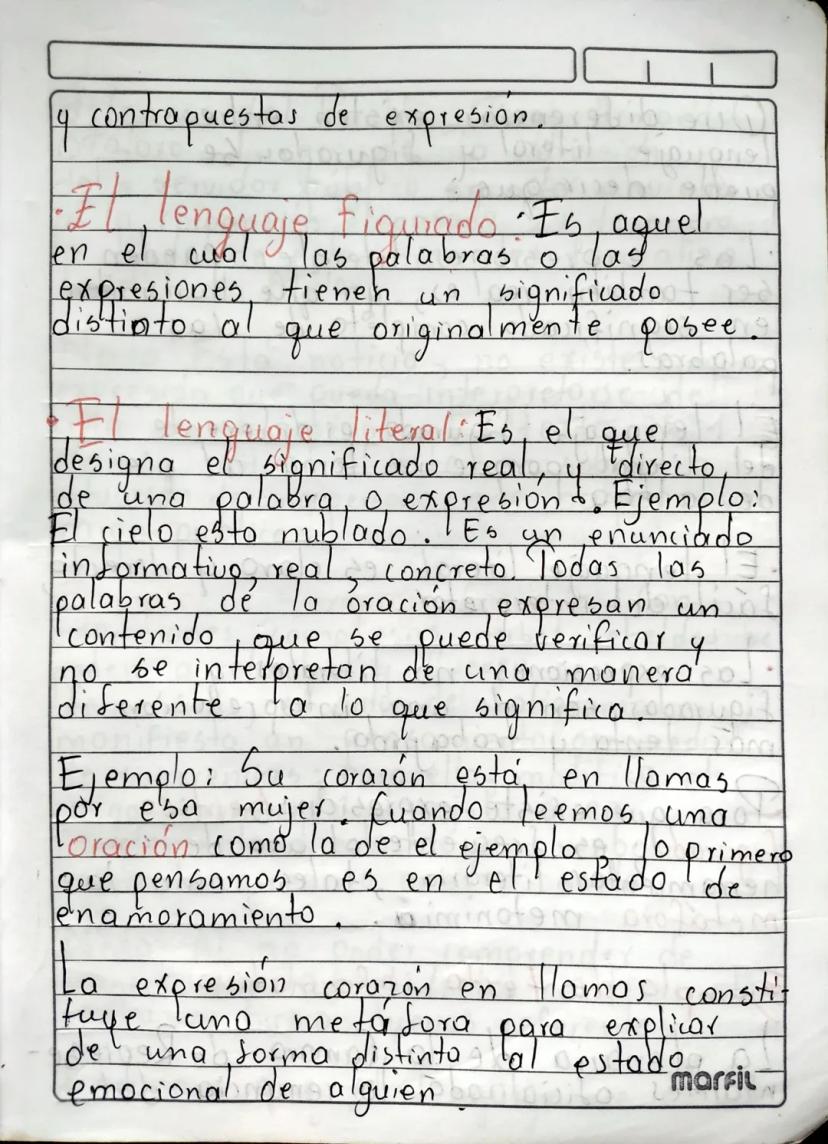 y contrapuestas de expresión.
·El lenguaje figurado: Es aquel
en el cual las palabras o las
expresiones tienen un significado
distinto al que originalmente posee.
·El lenguaje literal: Es el que
designa el significado real y directo
de una palabra o expresión. Ejemplo:
El cielo esto nublado. Es un enunciado
informativo, real, concreto. Todas las
palabras de la oración expresan un
contenido que se puede verificar y
no se interpretan de una manera
diferente a lo que significa.
Ejemplo: Su corazón está en llamas
por esa mujer. Cuando leemos una
oración como la de el ejemplo, lo primero
que pensamos es en el estado de
enamoramiento.
La expresión corazón en llamas consti-
tuye una metáfora para explicar
de una forma distinto al estado
emocional de alguien
marfil